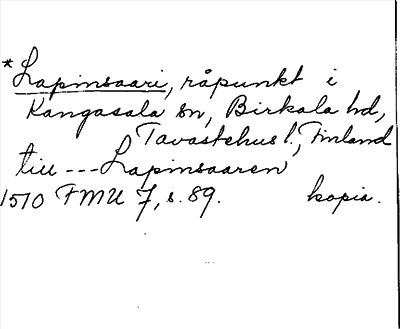 * Lapinsaari, råpunkt i
Kangasala sn, Birkala hd,
Tavastehus l., Finland
till --- Lapinsaaren
1510 FMU 7, s. 89. kopia.